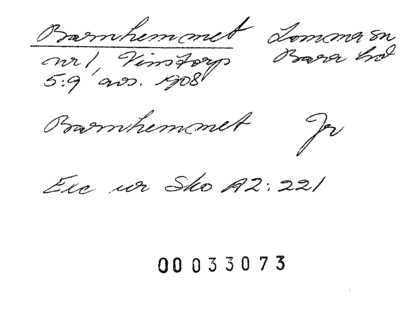 Barnhemmet Lomma sn
nr 1, Vinstorp Bara hd
5:9 avs. 1908
Barnhemmet Jr
Exc ur Sko A2:221
00033073